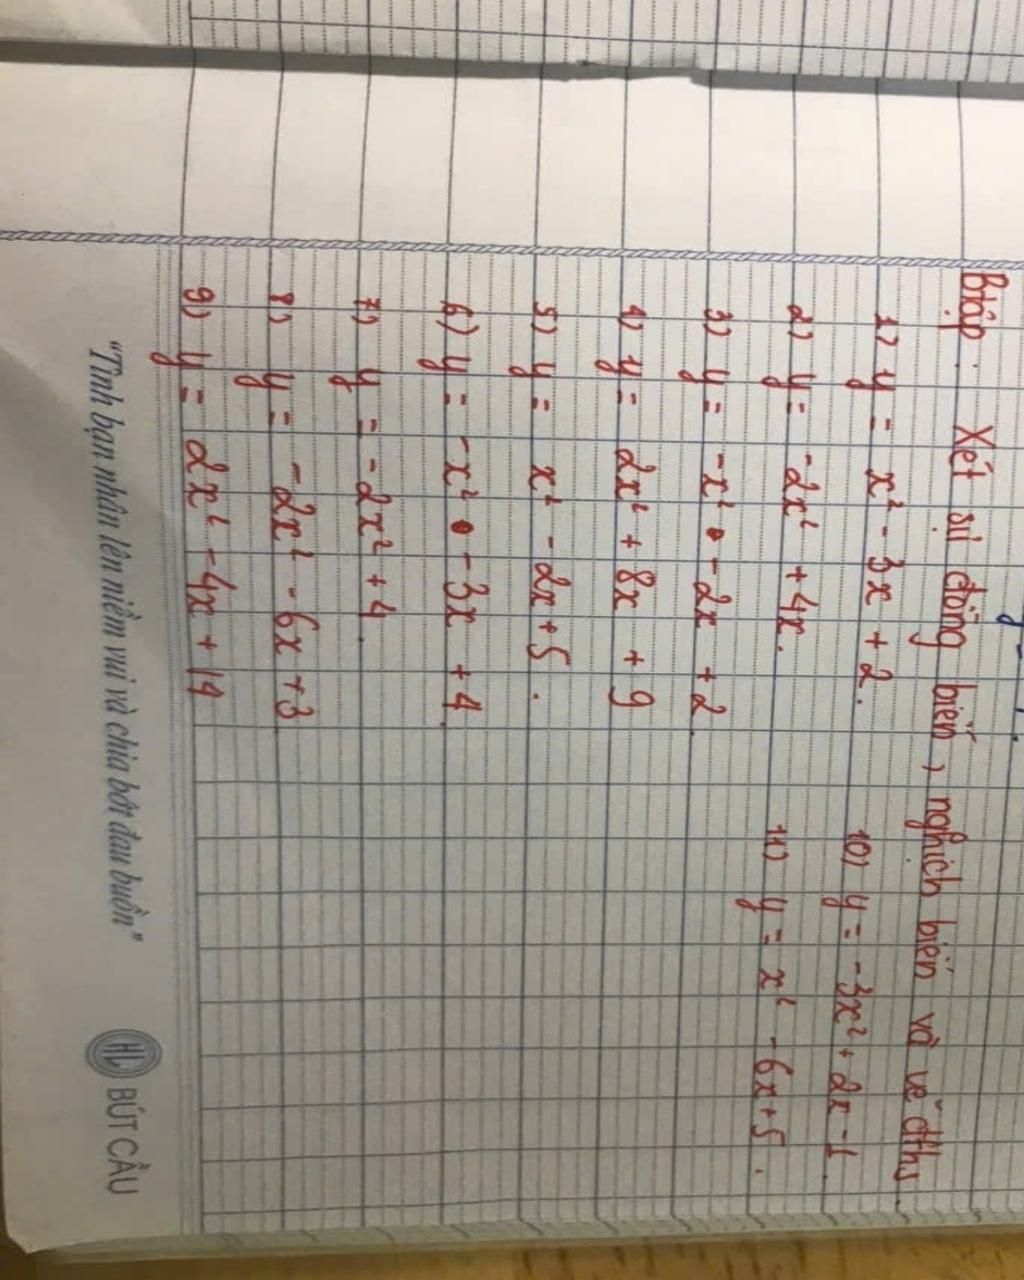 Btập: Xét sự đồng biến, nghịch biến và vẽ đths.
1) y = x² - 3x + 2.
2) y = -2x² + 4x.
3) y = -x² - 2x + 2
4) y = 2x² + 8x + 9
5) y = x² - 2x + 5.
6) y = -x² - 3x + 4
7) y = -2x² + 4.
8) y = -2x² - 6x + 3
9) y = 2x² - 4x + 19
10) y = -3x² + 2x - 1
11) y = x² - 6x + 5.
"Tình bạn nhân lên niềm vui và chia bớt đau buồn"
HL BÚT CẦU